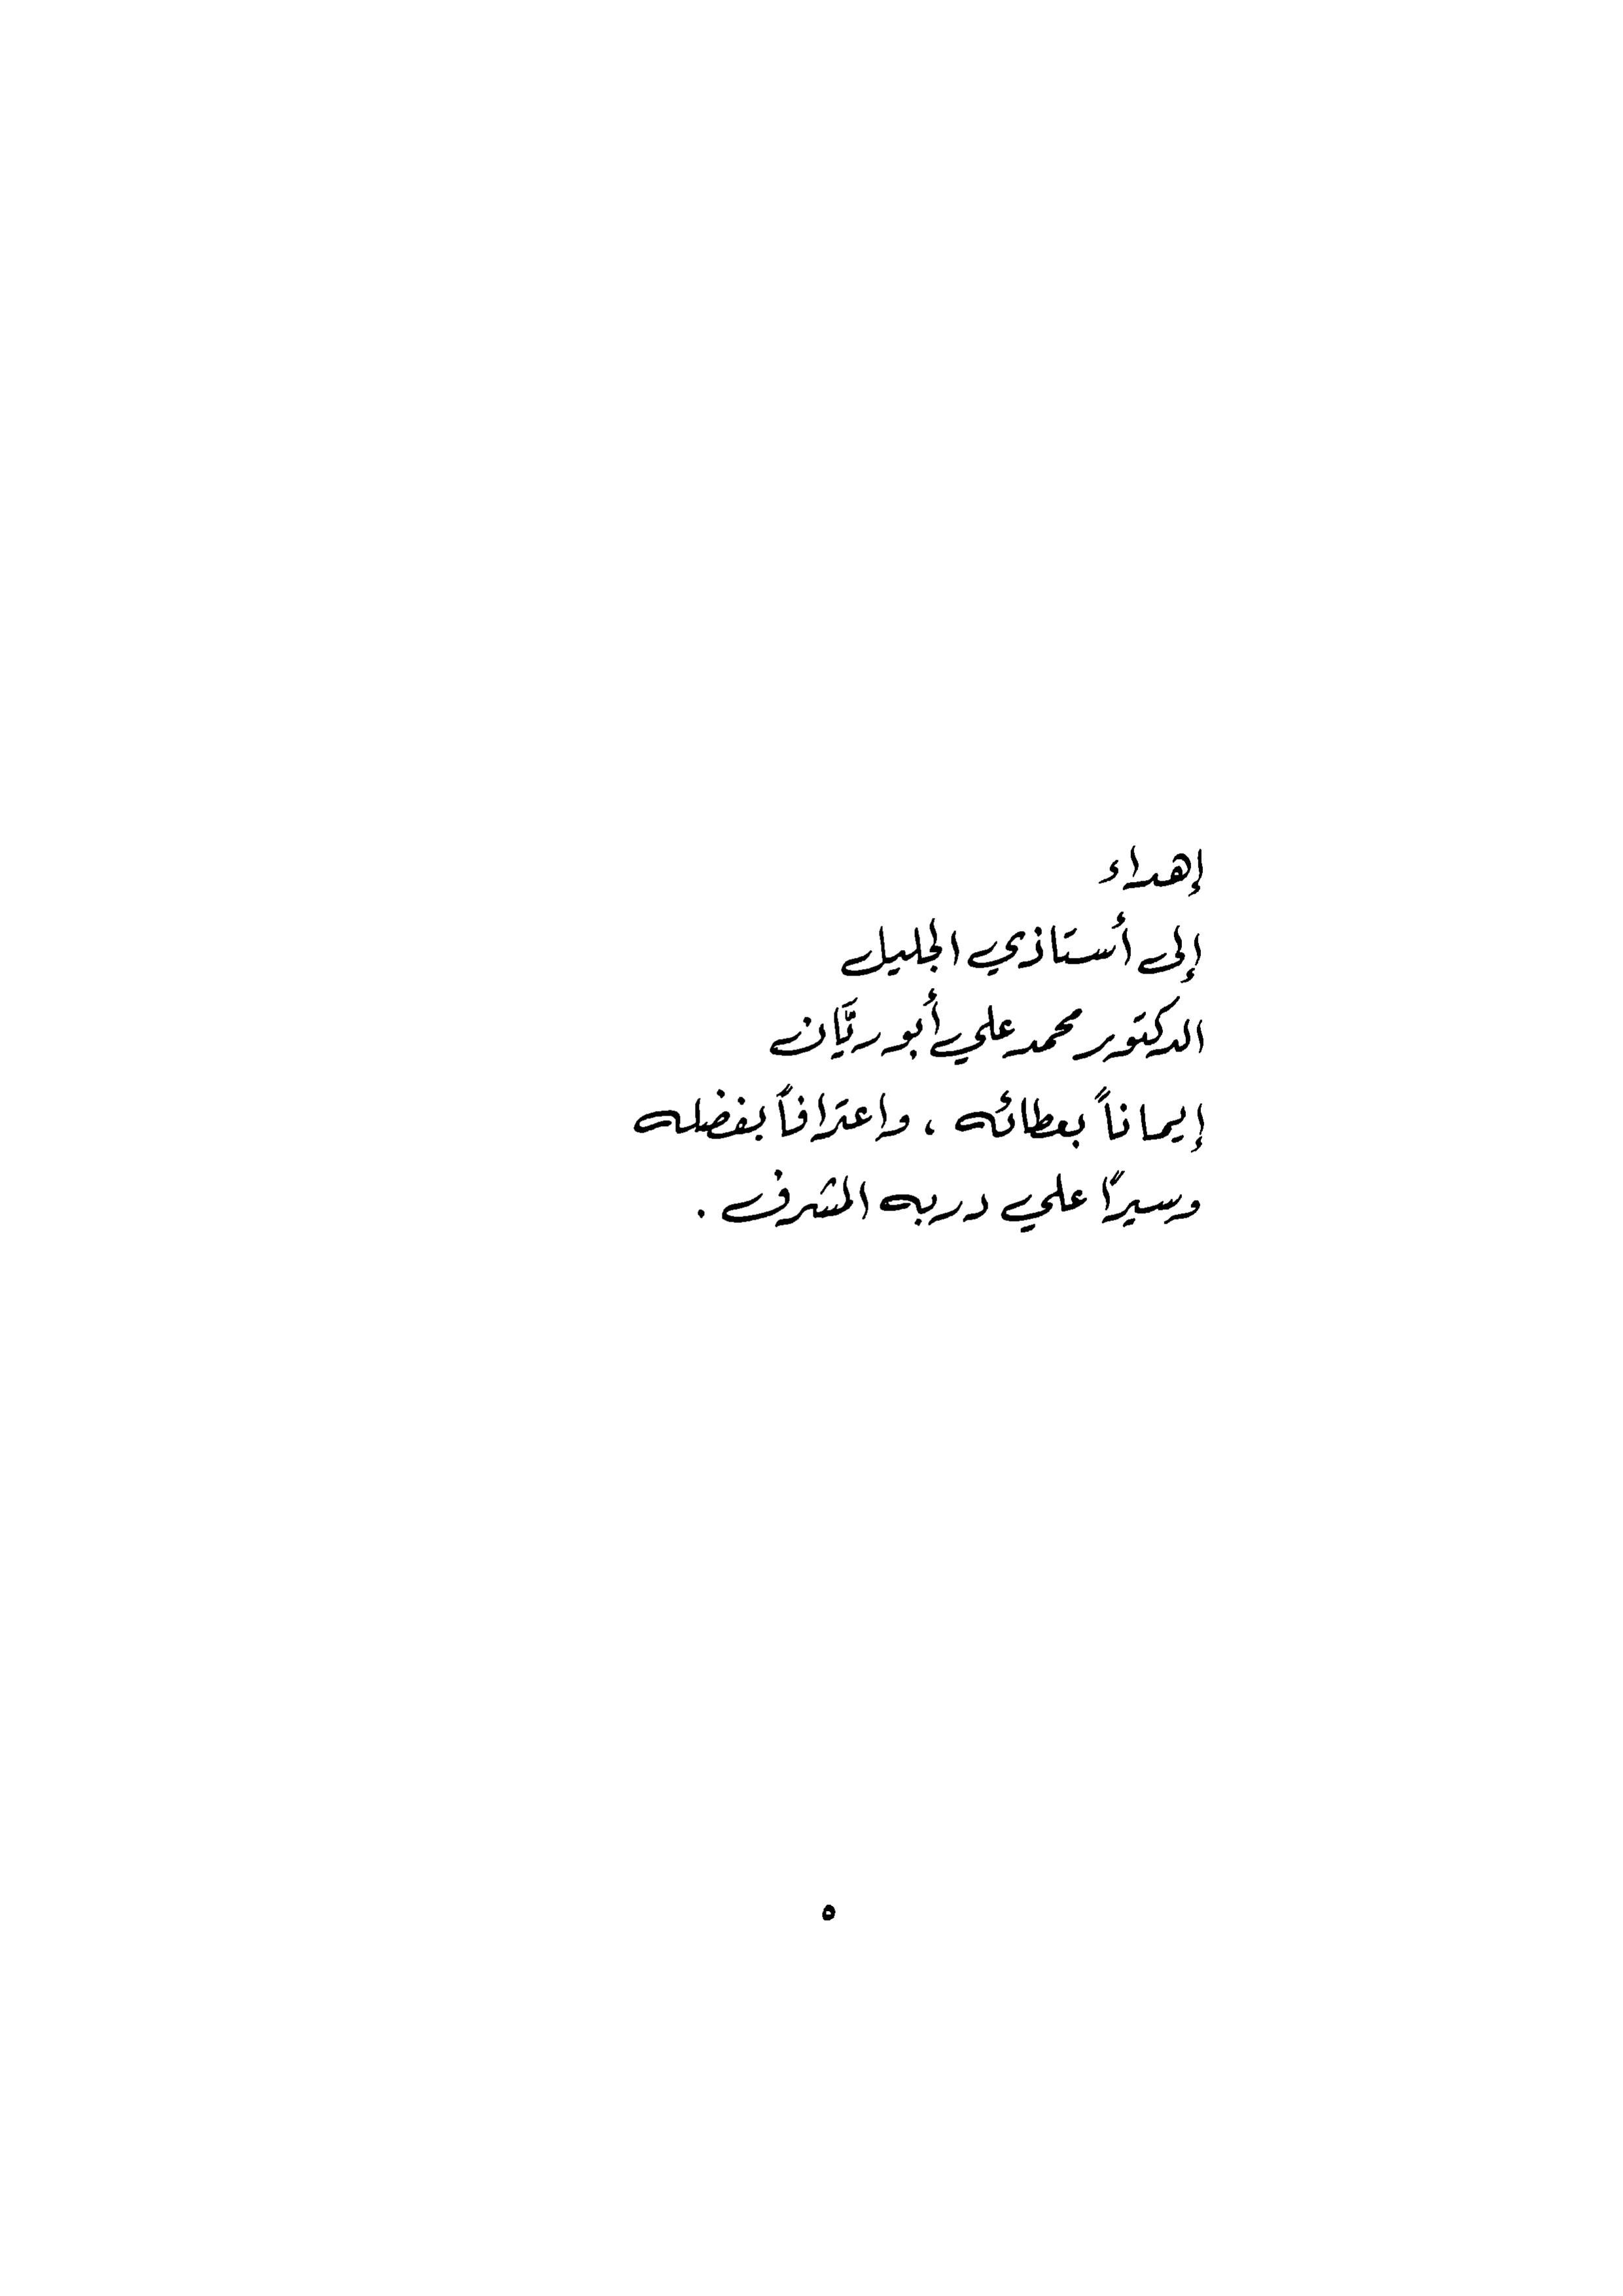 إهداء
إلى أستاذي الجليل
الدكتور محمد علي أبو ريَّان
إيماناً بعطائه ، واعترافاً بفضله
وسيرًا علي دربه المشرف .
٥